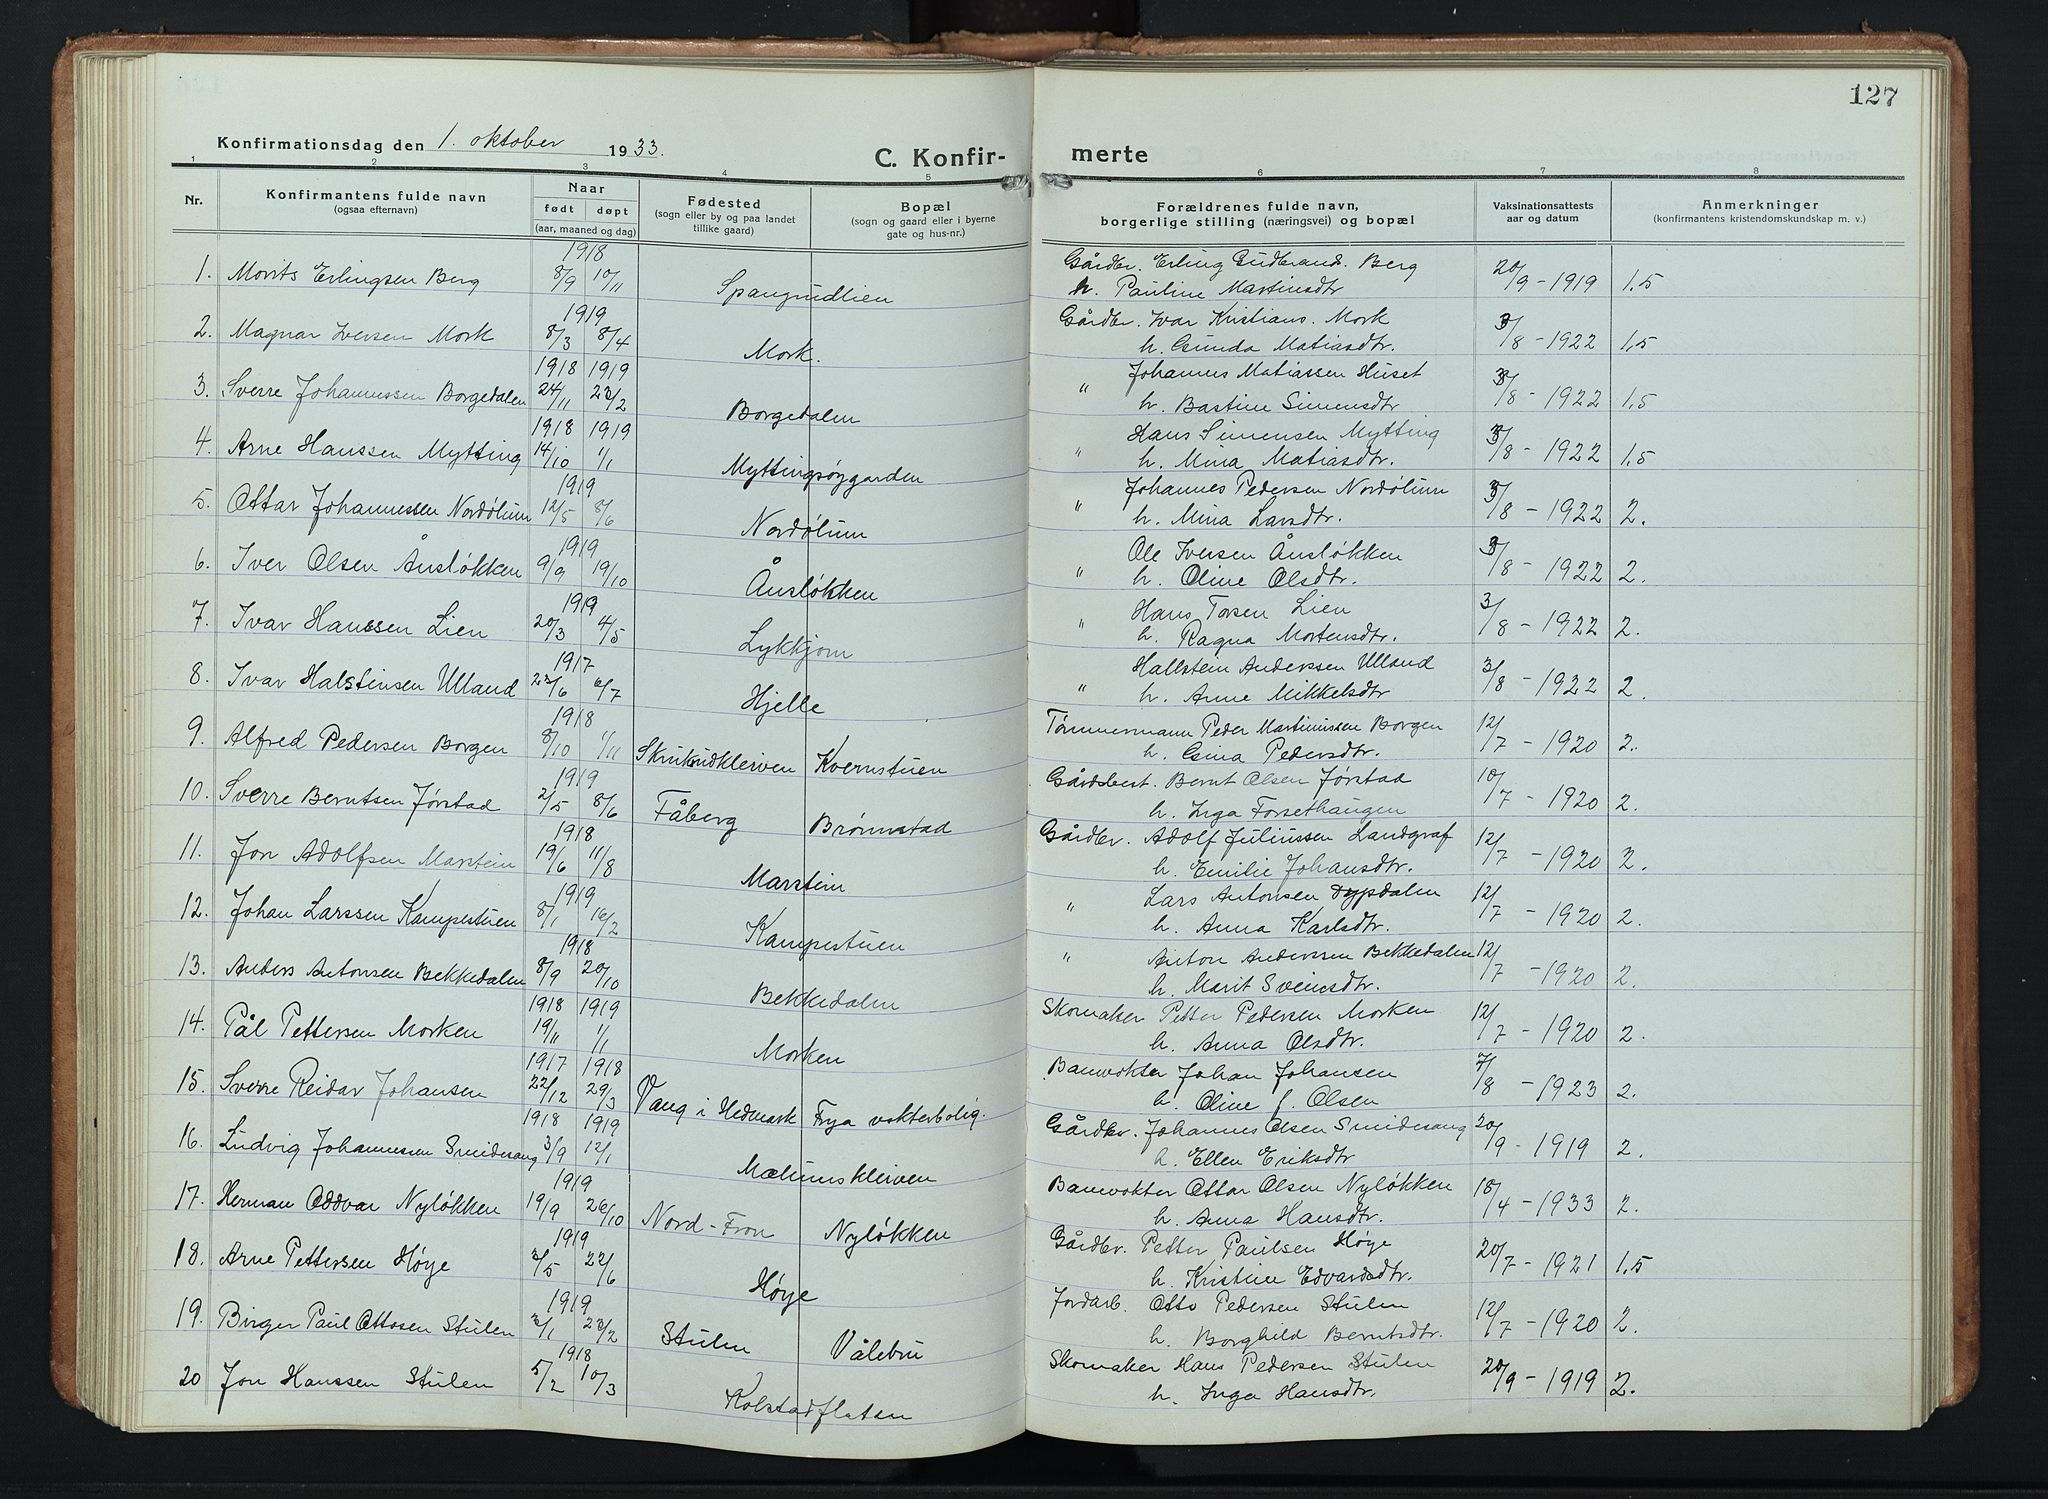 127
Konfirmationsdag den 1. oktober 1933.
C. Konfir- merte
1 2 3 4 5 6 7 8
Nr. Konfirmantens fulde navn (ogsaa efternavn) Naar født døpt (aar, maaned og dag) Fødested (sogn eller by og paa landet tillike gaard) Bopæl (sogn og gaard eller i byerne gate og hus-nr.) Forældrenes fulde navn, borgerlige stilling (næringsvei) og bopæl Vaksinationsattests aar og datum Anmerkninger (konfirmantens kristendomskundskap m. v.)
1918 Gårdbr. Erling Gudbrand. Berg
1. Morits Erlingsen Berg 8/9 10/11 Spangrudlien h. Pauline Martinsdtr 20/9 - 1919 1.5
1919 Gårdbr. Ivar Kristians. Mork
2. Magnar Iversen Mork 8/3 8/4 Mork. h. Gunda Matiasdtr. 3/8 - 1922 1.5
1918 1919 Johannes Matiassen Huset
3. Sverre Johannessen Borgedalen 24/11 23/2 Borgedalen " h. Bastine Simensdtr 3/8 - 1922 1.5
1918 1919 Hans Simensen Mytting
4. Arne Hanssen Mytting 14/10 1/1 Myttingsøygarden " h. Mina Matiasdtr. 3/8 - 1922 1.5
1919 Johannes Pedersen Nordølum
5. Ottar Johannessen Nordølum 12/5 8/6 Nordølum " h. Mina Larsdtr. 3/8 - 1922 2.
1919 Ole Iversen Ånsløkken
6. Iver Olsen Ånsløkken 9/9 19/10 Ånsløkken " h. Oline Olsdtr. 3/8 - 1922 2.
1919 Hans Torsen Lien
7. Ivar Hanssen Lien 20/3 4/5 Lykkjom " h. Ragna Mortensdtr. 3/8 - 1922 2.
1917 Hallstein Anderssen Ulland
8. Ivar Halstinsen Ulland 23/6 6/7 Hjelle " h. Anne Mikkelsdtr 3/8 - 1922 2.
1918 Tømmermann Peder Martinussen Borgen
9. Alfred Pedersen Borgen 8/10 1/11 Skurudkleiven Kvernstuen h. Gina Pedersdtr. 12/7 - 1920 2.
1919 Gårdsbest. Bernt Olsen Jørstad
10. Sverre Berntsen Jørstad 2/5 8/6 Fåberg Brønnstad h. Inga Forsethaugen 10/7 - 1920 2.
1918 Gårdbr. Adolf Juliussen Handgraf
11. Jon Adolfsen Marstein 19/6 11/8 Marstein h. Emilie Johansdtr. 12/7 - 1920 2.
1919 Lars Antonsen Dypdalen
12. Johan Larssen Kampestuen 8/1 16/2 Kampestuen " h. Anna Karlsdtr. 12/7 - 1920 2.
1918 Anton Anderssen Bekkedalen
13. Anders Antonsen Bekkedalen 8/9 20/10 Bekkedalen " h. Marit Sveinsdtr. 12/7 - 1920 2.
1918 1919 Skomaker Petter Pedersen Morken
14. Pål Pettersen Morken 19/11 1/1 Morken h. Anna Olsdtr. 12/7 - 1920 2.
1917 1918 Banevokter Johan Johansen
15. Sverre Reidar Johansen 22/12 29/3 Vang i Hedmark Frya vokterbolig. h. Oline f. Olsen 7/8 - 1923 2.
1918 1919 Gårdbr. Johannes Olsen Smidesang
16. Ludvig Johannessen Smidesang 3/9 12/1 Mælumskleiven h. Ellen Eriksdtr 20/9 - 1919 2.
1919 Banevokter Ottar Olsen Nyløkken
17. Herman Oddvar Nyløkken 19/9 26/10 Nord-Fron Nyløkken h. Anna Hansdtr. 18/4 - 1933 2.
1919 Gårdbr. Petter Paulsen Høye
18. Arne Pettersen Høye 2/5 22/6 Høye h. Kristine Edvardsdtr. 20/7 - 1921 1.5
1919 Jordarb. Otto Pedersen Stulen
19. Birger Paul Ottosen Stulen 3/1 23/2 Stulen Vålebru h. Borghild Berntsdtr. 12/7 - 1920 2.
1918 Skomaker Hans Pedersen Stulen
20 Jon Hanssen Stulen 5/2 10/3 Kolstadflaten h. Inga Hansdtr. 20/9 - 1919 2.